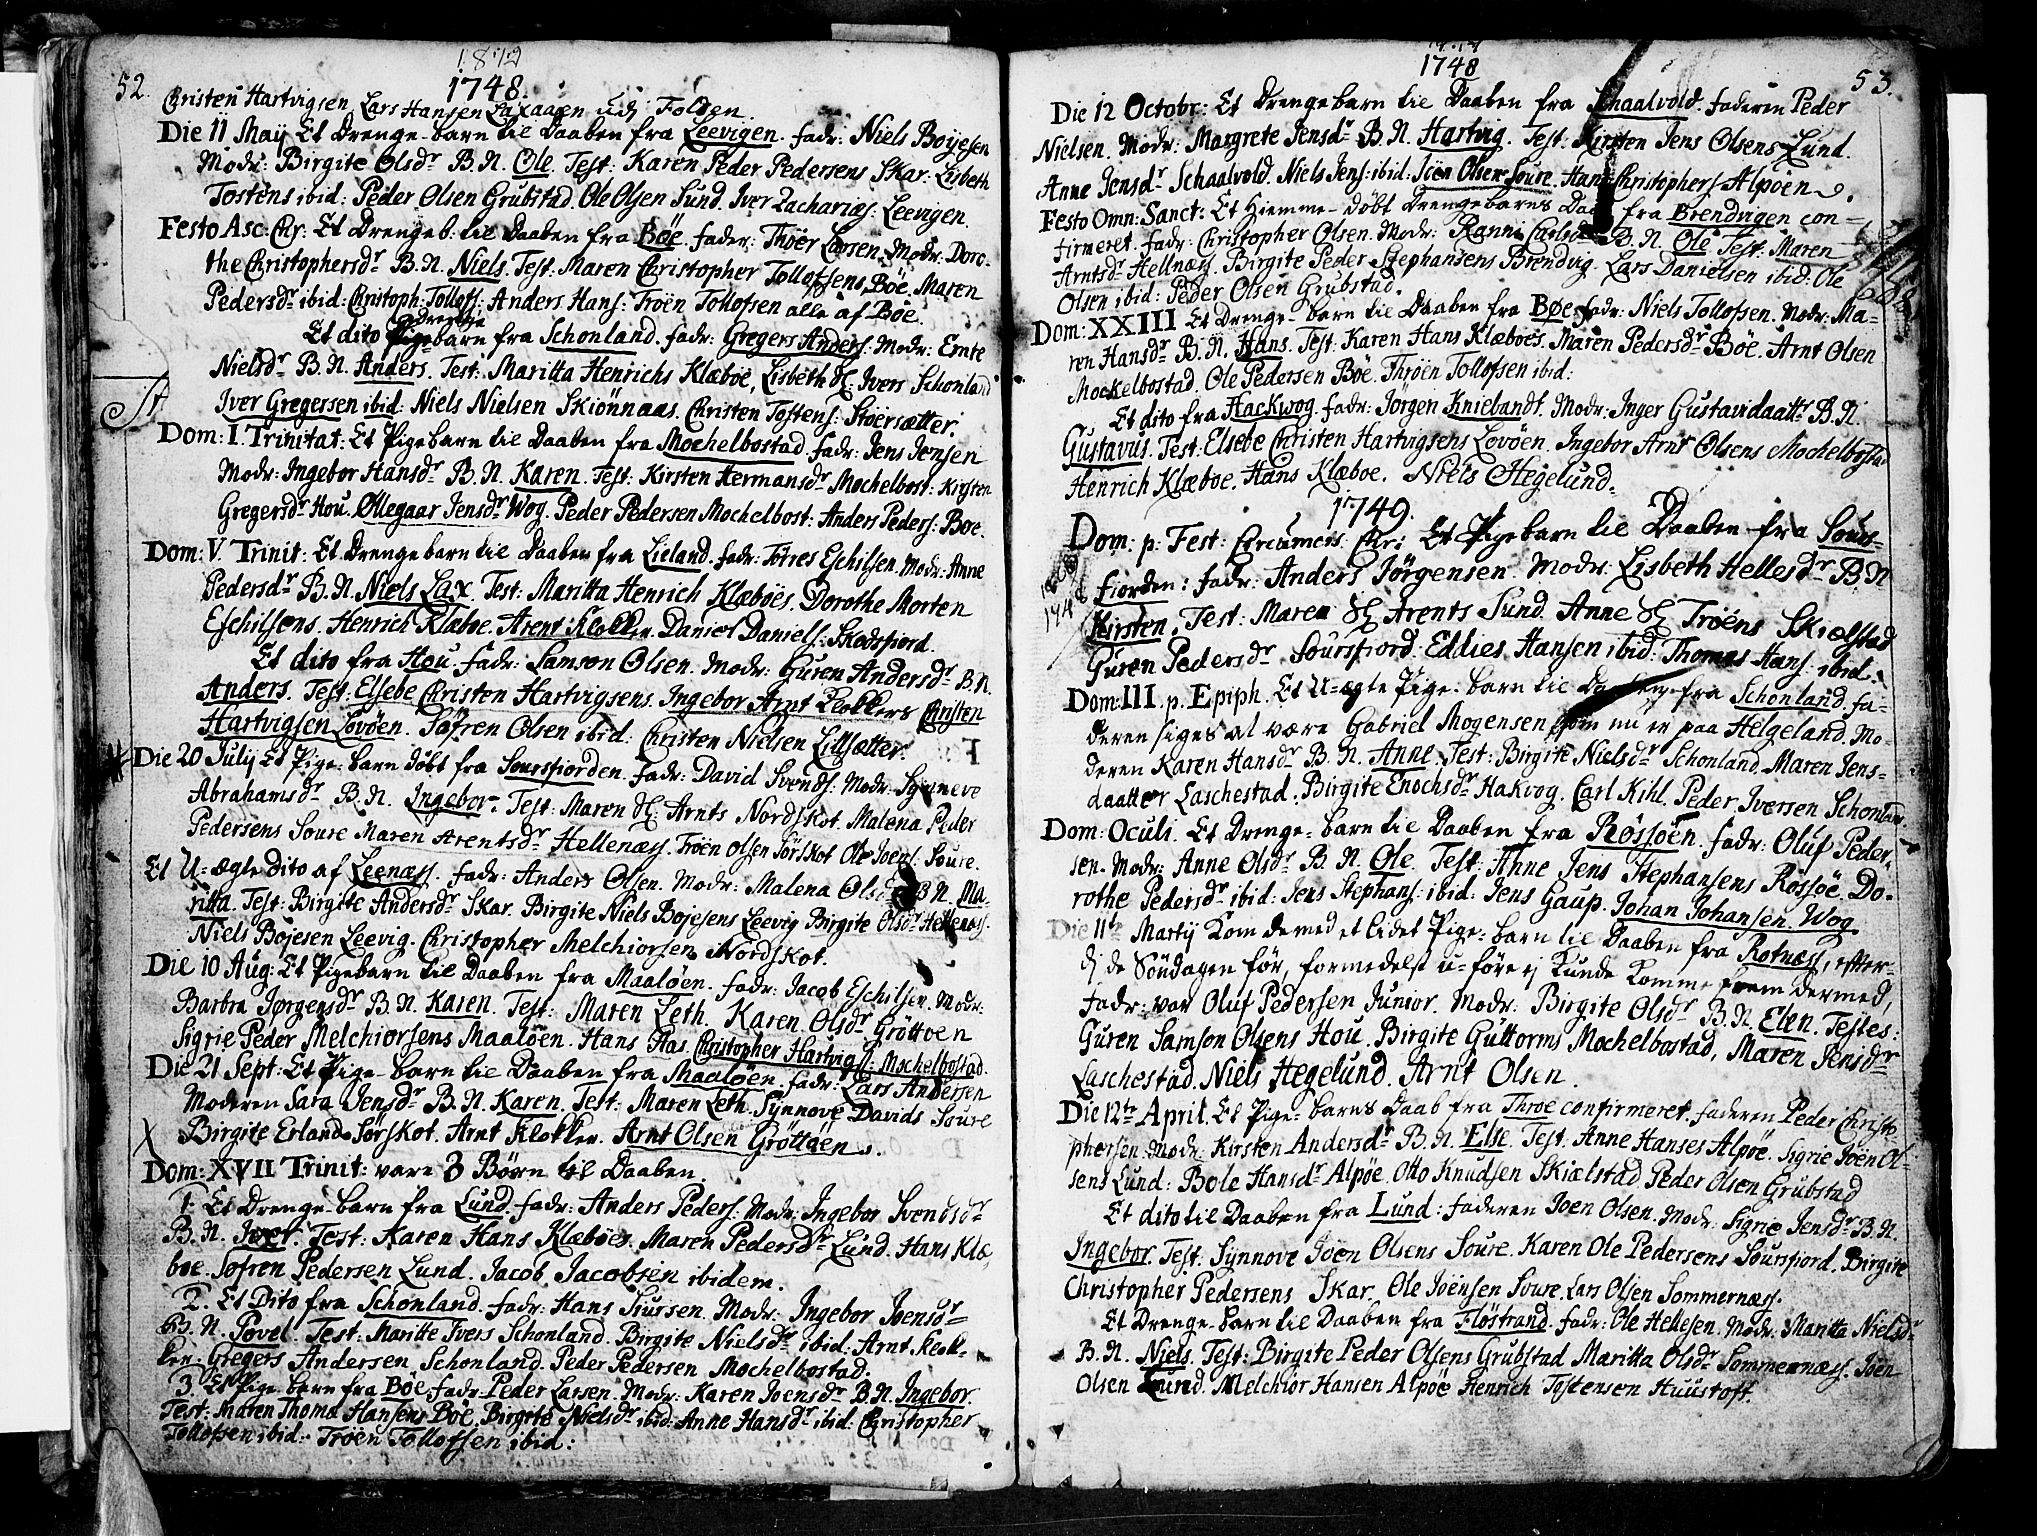 52.
1748.
Christen Hartvigsen Lars Hansen Laxaaen udj Folden.
Die 11 Maij Et Drenge-barn til Daaben fra Leevigen. fadr: Niels Bojesen
Modr: Birgite Olsdr B.N. Ole. Test: Karen Peder Pedersens Skar. Lisbeth
Tostens ibid: Peder Olsen Grubstad. Ole Olsen Sund. Iver Zacharies: Leevigen.
Festo Asc: Chr: Et Drengeb: til Daaben fra Böe. fader: Thöer Larsen. Modr: Doro-
the Christophersdr B.N. Niels. Test: Maren Christopher Tollofsens, Böe. Maren
Pedersdr ibid: Christoph: Tollofs: Anders Hans: Tröen Tollofsen alle af Böe.
Et dito Drenge barn fra Schonland. fadr: Gregers Anders: Modr: Emte
Nielsdr B.N. Anders. Test: Maritta Henrichs Klæboe, Lisbeth Sl: Ivers Schonland
Iver Gregersen ibid: Niels Nielsen Skiönnaas. Christen Tostens: Stoersætter.
Dom: I. Trinitat: Et Pigebarn til Daaben fra Mochelbostad. fadr: Jens Jensen
Modr: Ingebor Hansdr B.N. Karen. Test: Kirsten Hermansdr Mochelbost: Kirsten
Gregersdr Hou. Ollegaar Jensdr Wog. Peder Pedersen Mochelbost: Anders Peders: Boe.
Dom: V. Trinit: Et Drenge barn til Daaben fra Lieland. fadr: Totres Eschilsen. Modr: Anne
Pedersdr B.N. Niels Lax. Test: Maritta Henrich Klæböes. Dorothe Morten
Eschilsens. Henrich Klæboe. Arent Klokker. Daniel Daniels: Skodsfiord.
Et dito fra Hou. fadr: Samson Olsen. Modr: Guren Andersdr B.N.
Anders. Test: Elsebe Christen Hartvigsens. Ingebor Arnt Klokkers Christen
Hartvigsen Lovöen. Søfren Olsen ibid: Christen Nielsen Lillsætter.
Die 20 July Et Pige-barn döbt fra Soursfiorden. fadr: David Svends: Modr: Synneve
Abrahamsdr B.N. Ingebor. Test: Maren Sl: Arnts Nordskot. Malena Peder
Pedersens Soure Maren Arentsdr Hellenæss. Tröen Olsen Sörskot Ole Joens: Soure.
Et U-ægte Dito af Leenæss. fadr: Anders Olsen. Modr: Malena B.N. Ma-
ritta. Test: Birgite Andersdr Skar. Birgite Niels Bojesens Leevig Birgite Olsdr Hellenæs.
Niels Böjesen Leevig. Christopher Melchiorsen Nordskot.
Die 10 Aug: Et Pigebarn til Daaben fra Maalöen. fadr: Jacob Eschilsen. Modr:
Barbra Jørgensdr B.N. Karen. Test: Maren Leth. Karen Olsdr Gröttöen
Sigrie Peder Melchiorsens Maalöen. Hans Aas. Christopher Hartvigs: Mochelbostad.
Die 21 Sept: Et Pige-barn til Daaben fra Maalöen. fadr: Lars Andersen
Moderen Sara Jensdr B.N. Karen. Test: Maren Leth. Synnove Davids Soure
Birgite Erlands Sörskot. Arnt Klokker. Arnt Olsen Gröttöen.
Dom: XVII Trinit: vare 3 Börn til Daaben.
1. Et Drenge-barn fra Lund. fadr: Anders Peders: Modr: Ingebor Svendsdr
B.N. Iver. Test: Karen Hans Klæböes. Maren Pedersdr Lund. Hans Klæ-
boe. Søfren Pedersen Lund. Jacob Jacobsen ibidem.
2. Et Dito fra Schonland. fadr: Hans Siursen. Modr: Ingebor Joensdr
B.N. Povel. Test: Maritte Ivers Schonland. Birgite Nielsdr ibid: Arnt Klok-
ker. Gregers Andersen Schonland. Peder Pedersen Mochelbostad.
3. Et Pige-barn fra Böe. fadr: Peder Larsen. Modr: Karen Joensdr B.N. Ingebor.
Test: Maren Thoma Hansens Böe. Birgite Nielsdr ibid: Anne Hansdr ibid: Christopher
Tollofsen ibid: Tröen Tollofsen ibid:
1748
53.
Die 12 Octobr: Et Drenge barn til Daaben fra Schaalvold. faderen Peder
Nielsen. Modr: Margrete Jensdr B.N. Hartvig. Test: Kirsten Jens Olsens Lund.
Anne Jensdr Schaalvold. Niels Jens: ibid: Joen Olsen Soure. Hans Christophers: Alpöen.
Festo Omn: Sanct: Et Hiemme-döbt Drengebarns Daab fra Brendvigen con-
firmeret. fadr: Christopher Olsen. Modr: Ranni B.N. Ole Test: Maren
Arntsdr Hellnæss. Birgite Peder Stephansens Brendvig. Lars Danielsen ibid: Ole
Olsen ibid: Peder Olsen Grubstad.
Dom: XXIII Et Drenge-barn til Daaben fra Bøe. fadr: Niels Tollofsen. Modr: Ma-
ren Hansdr B.N. Hans. Test: Karen Hans Klæboes. Maren Pedersdr Böe. Arnt Olsen
Mockelbostad. Ole Pedersen Böe. Thröen Tollofsen ibid:
Et dito fra Hackvog. fadr: Jörgen Knielandt. Modr: Inger Gustavidaattr B.N.
Gustavus. Test: Elsebe Christen Hartvigsens Lovöen. Ingebor Arnt Olsens Mochelbostad
Henrich Klæboe. Hans Klæboe. Niels Hegelund.
1749.
Dom. p. Fest: Circumcis: Chr: Et Pigebarn til Daaben fra Sours-
fiorden: fadr: Anders Jörgensen. Modr: Lisbeth Hellesdr B.N.
Kirsten. Test: Maren Sl: Arents Sund. Anne Sl: Tröens Skielstad
Guren Pedersdr Soursfiord. Eddies Hansen ibid: Thomas Hans: ibid.
Dom: III. p. Epiph. Et U-ægte Pige-barn til Daaben fra Schonland. fa-
deren siges at være Gabriel Mogensen som nu er paa Helgeland. Mo-
deren Karen Hansdr B.N. Anne. Test: Birgite Nielsdr Schonland. Maren Jens-
daatter Laschestad. Birgite Enochsdr Hakvog. Carl Kihl. Peder Iversen Schonland
Dom: Oculi. Et Drenge-barn til Daaben fra Rössöen. fadr: Oluf Peder-
sen. Modr: Anne Olsdr B.N. Ole. Test: Anne Jens Stephansens Rössöe. Do-
rothe Pedersdr ibid: Jens Stephans: ibid: Jens Gaup. Johan Johansen Wog.
Die 11te Martij Kom de med et lidet Pige-barn til Daaben fra Rotnæss, efter-
dj de Söndagen för, formedelst u-före ej kunde komme frem dermed,
fadr: var Oluf Pedersen Junior. Modr: Birgite Olsdr B.N. Elen. Testes:
Guren Samson Olsens Hou. Birgite Guttorms Mochelbostad, Maren Jensdr
Laschestad. Niels Hegelund. Arnt Olsen.
Die 12te April. Et Pige-barns Daab fra Throe confirmeret. faderen Peder Christo-
phersen. Modr: Kirsten Andersdr B.N. Else. Test: Anne Hanses Alpöe. Sigrie Jöen Ol-
sens Lund: Bole Hansdr Alpöe. Otto Knudsen Skielstad. Peder Olsen Grubstad
Et dito til Daaben fra Lund: faderen Joen Olsen. Modr: Sigrie Jensdr B.N.
Ingebor. Test: Synnove Joen Olsens Soure. Karen Ole Pedersens Soursfiord. Birgite
Christopher Pedersens Skar. Ole Joensen Soure. Lars Olsen Sommernæss.
Et Drenge-barn til Daaben fra Flöstrand. fadr: Ole Hellesen. Modr: Maritta Nielsdr
B.N. Niels. Test: Birgite Peder Olsens Grubstad Maritta Olsdr Sommernæss. Joen
Olsen Lund. Melchior Hansen Alpöe Henrich Tostensen Huustoft.